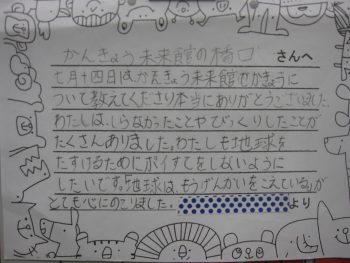 かんきょう未来館の橋口 さんへ
七月十四日は、かんきょう未来館でかんきょうに
ついて教えてくださり本当にありがとうございました。
わたしは、しらなかったことやびっくりしたことが
たくさんありました。わたしも地球を
たすけるためにポイすてをしないように
したいです。「地球は、もうげんかいをこえている」が
とても心にのこりました。
より